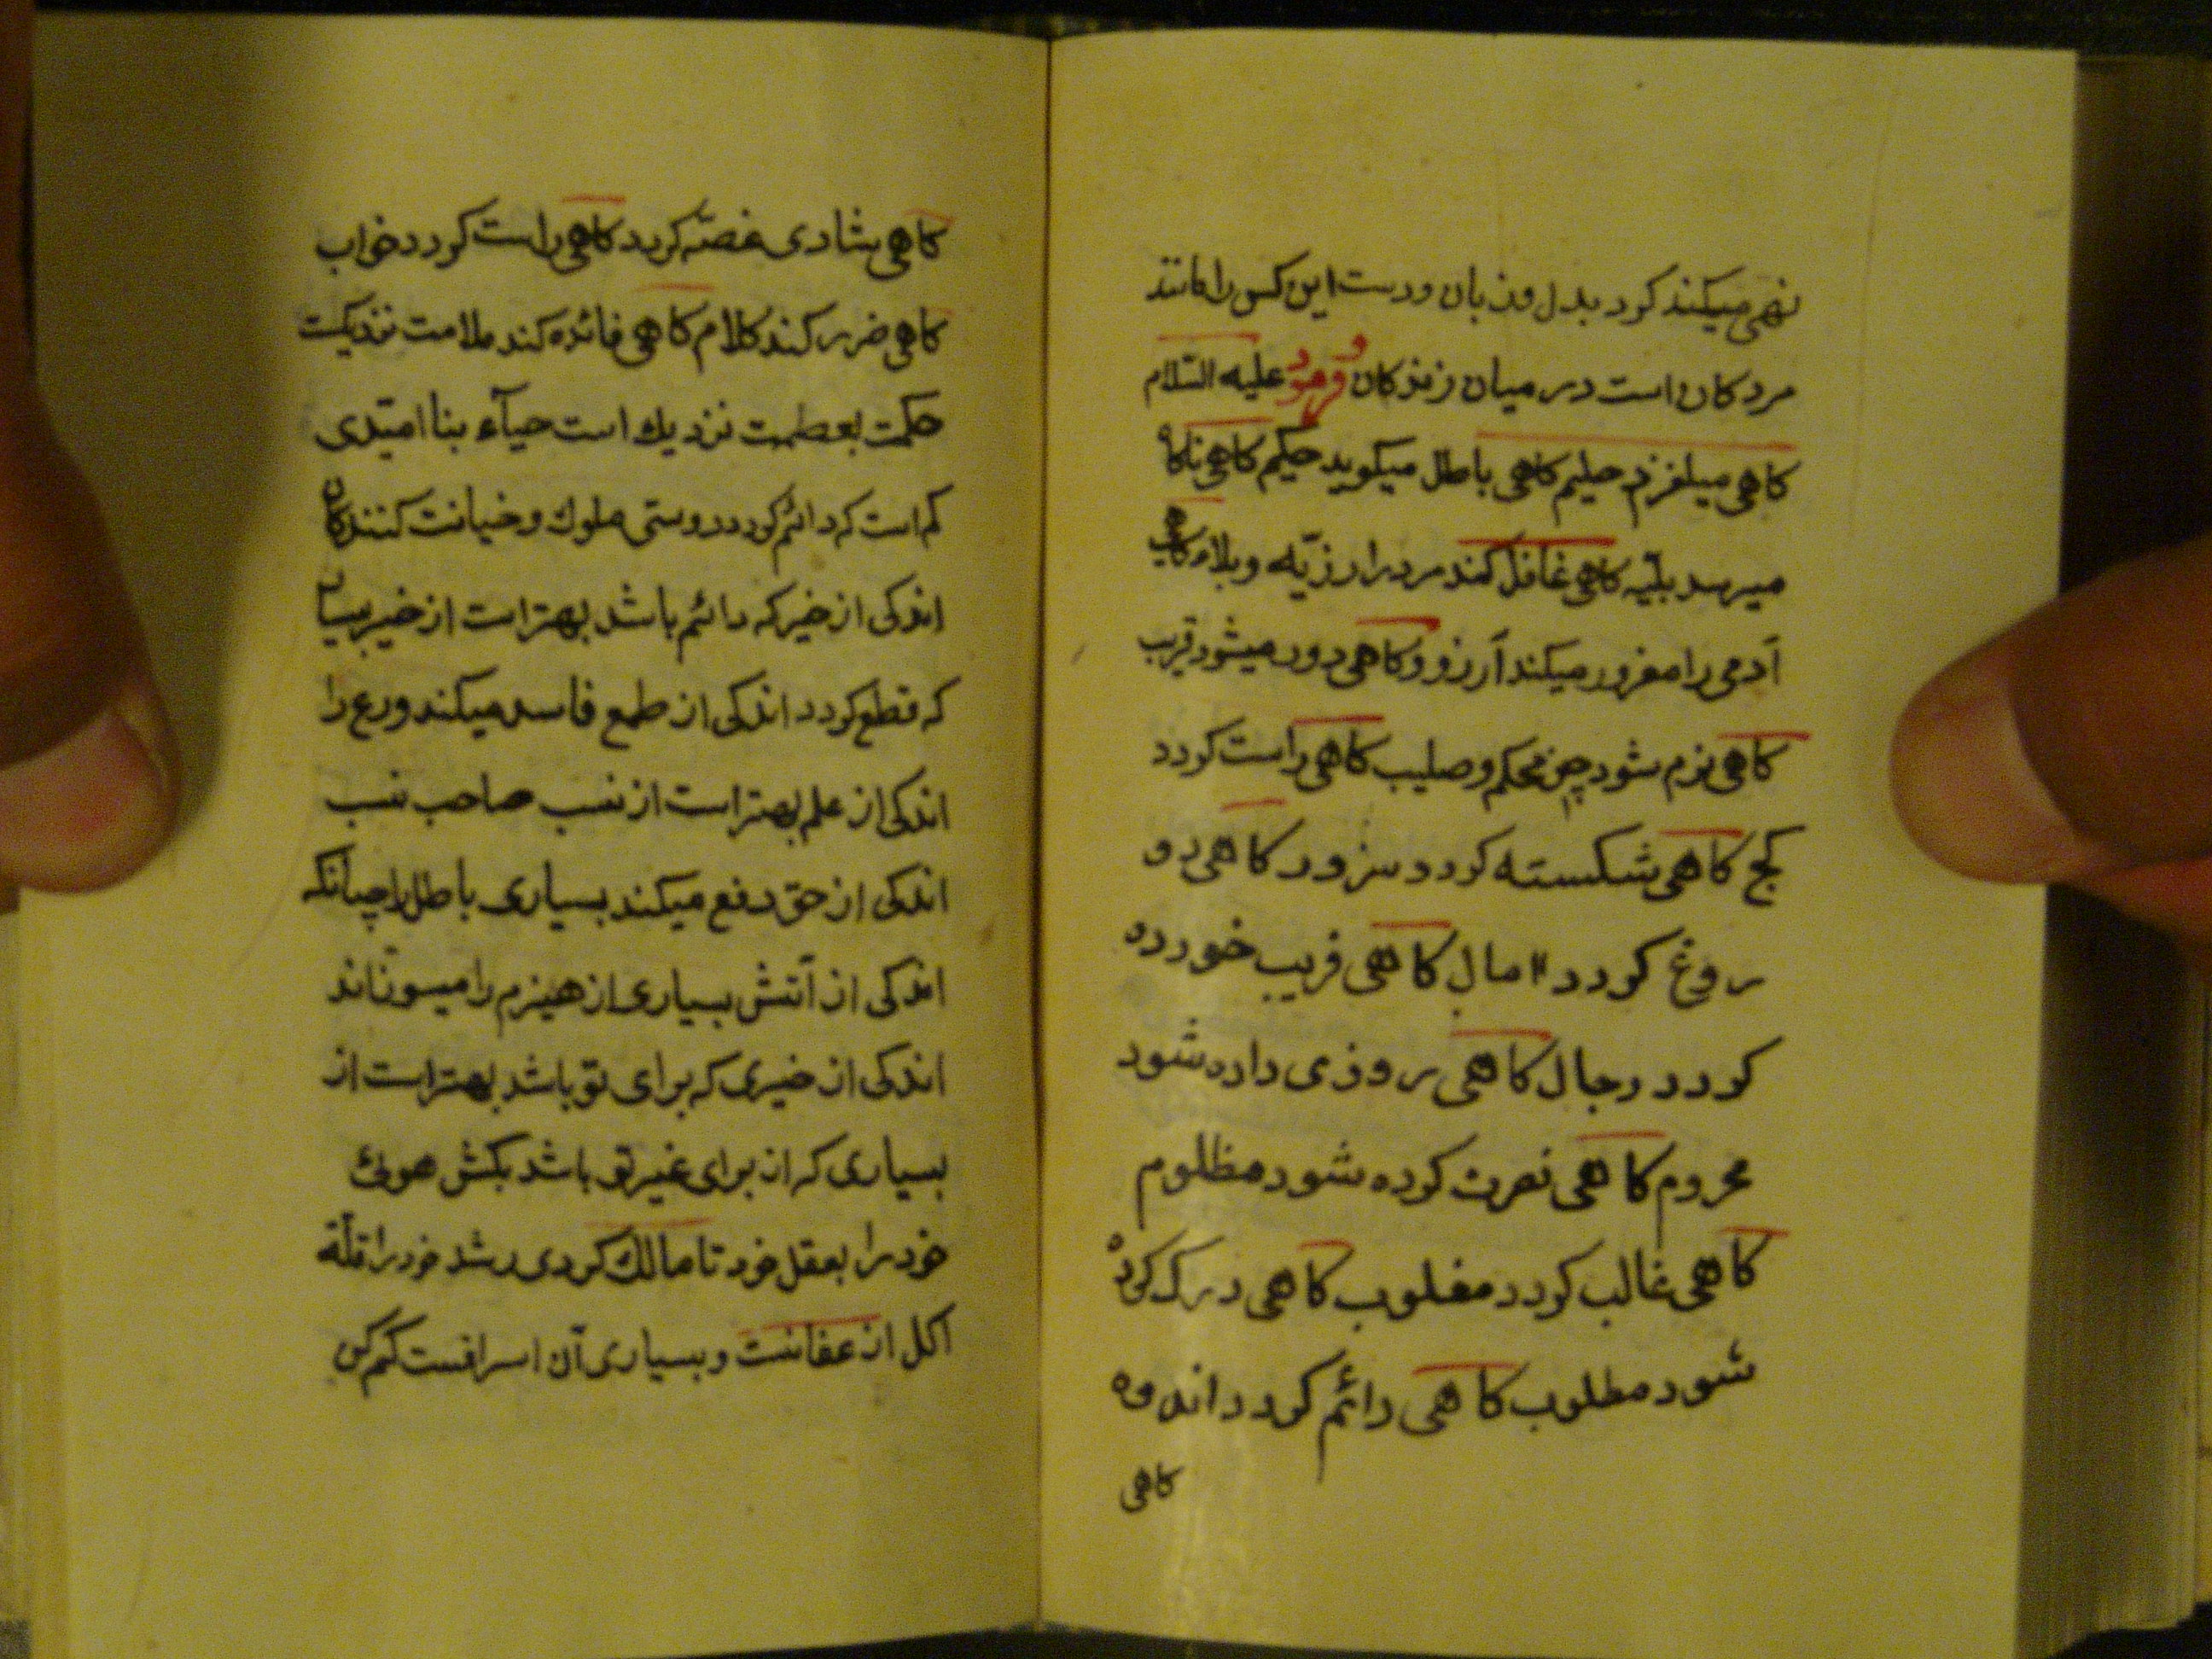 نهی میکند کرد بدل وزبان ودست این کس را مانند
مردکان است در میان زندکان و فرمود علیه السّلام
کاهی میلغزد حلیم کاهی باطل میکوید حکیم کاهی ناکاه
میرسد بلیّه کاهی غافل کند مرد را رزیّه وبلاء کاهی
آدمی را مغرور میکند آرزو وکاهی دور میشود قریب
کاهی نرم شود چیز محکم وصلیب کاهی راست کردد
کج کاهی شکسته کردد سزور کاهی دو
روغ کردد امال کاهی فریب خورده
کردد رجال کاهی روزی داده شود
محروم کاهی نصرت کرده شود مظلوم
کاهی غالب کردد مغلوب کاهی درک کرده
شود مطلوب کاهی دائم کردد اندوه
کاهی
کاهی بشادی غصّه کردد کاهی راست کردد خواب
کاهی ضرر کند کلام کاهی فائده کند ملامت نزدیکست
حکمت بعظمت نزدیک است حیآء بنا امیّدی
کم است که دائم کردد دوستی ملوک وخیانت کنندکان
اندکی از خیر که دائم باشد بهتر است از خیر بسیار
که قطع کردد اندکی از طمع فاسد میکند ورع را
اندکی از علم بهتر است از نسب صاحب نسب
اندکی از حق دفع میکند بسیاری باطل را چنانکه
اندکی از آتش بسیاری از هیزم را میسوزاند
اندکی از خیری که برای تو باشد بهتر است از
بسیاری که از برای غیر تو باشد بکش هوای
خود را بعقل خود تا مالک کردی رشد خود را قلّة
اکل از عفافست وبسیاری آن اسرافست کم کن